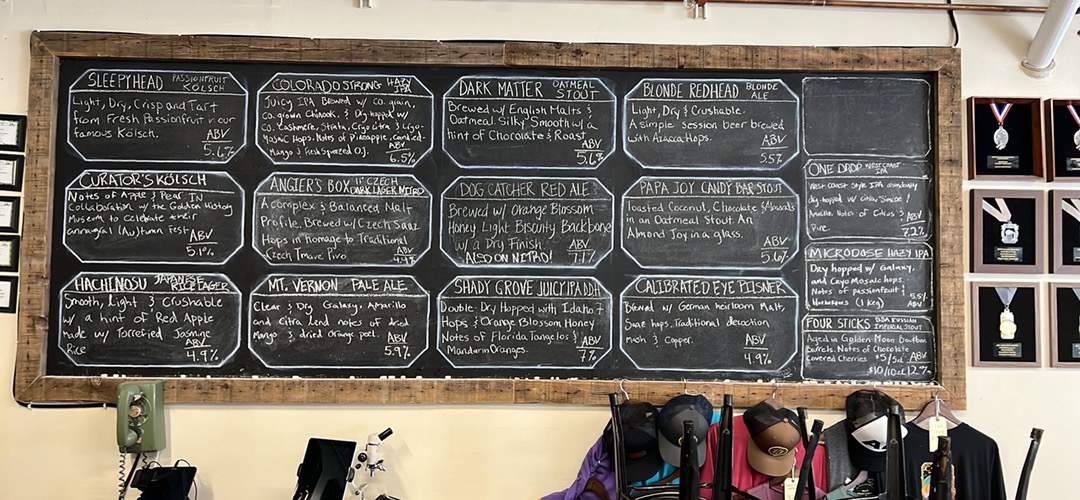 SLEEPYHEAD PASSIONFRUIT KÖLSCH
Light, Dry, Crisp and Tart
from Fresh Passionfruit in our
famous Kölsch.
ABV
5.6%
COLORADO STRONG HAZY IPA
Juicy IPA Brewed w/ Co. grain,
Co. grown Chinook, & Dry-hopped w/
Co. Cashmere, Strata, Cryo Citra & Cryo
Mosaic Hops. Notes of Pineapple, candied
Mango & Fresh Squeezed O.J.
ABV
6.5%
DARK MATTER OATMEAL STOUT
Brewed w/ English Malts &
Oatmeal. Silky Smooth w/ a
hint of Chocolate & Roast
ABV
5.6%
BLONDE REDHEAD BLONDE ALE
Light, Dry & Crushable.
A simple session beer brewed
with Azacca Hops.
ABV
5.5%
CURATOR'S KÖLSCH
Notes of Apple & Pear In
Collaboration w/ the Golden History
Museum to celebrate their
annual (Au)tumn Fest
ABV
5.1%
ANGIER'S BOX 11° CZECH DARK LAGER NITRO
A complex & Balanced Malt
Profile. Brewed w/ Czech Saaz
Hops in homage to Traditional
Czech Tmavé Pivo
ABV
4.4%
DOG CATCHER RED ALE
Brewed w/ Orange Blossom
Honey Light Biscuity Backbone
w/ a Dry Finish.
ALSO ON NITRO!
ABV
7.1%
PAPA JOY CANDY BAR STOUT
Toasted Coconut, Chocolate & Almonds
in an Oatmeal Stout. An
Almond Joy in a glass.
ABV
5.6%
HACHINOSU JAPANESE RICE LAGER
Smooth, Light & Crushable
w/ a hint of Red Apple
made w/ Torrefied Jasmine
Rice
ABV
4.9%
MT. VERNON PALE ALE
Clear & Dry Galaxy, Amarillo
and Citra Lend notes of dried
Mango & dried Orange peel.
ABV
5.9%
SHADY GROVE JUICY IPA DDH
Double Dry Hopped with Idaho 7
Hops & Orange Blossom Honey
Notes of Florida Tangelos &
Mandarin Oranges.
ABV
7%
CALIBRATED EYE PILSNER
Brewed w/ German heirloom Malt,
Saaz hops, Traditional decoction
mash & Copper.
ABV
4.9%
ONE DROP WEST COAST IPA
West Coast Style IPA
dry-hopped w/ Citra, Simcoe &
Amarillo. Notes of Citrus &
Pine.
ABV
7.2%
MICRODOSE HAZY IPA
Dry hopped w/ Galaxy,
and Cryo Mosaic hops
Notes of passionfruit &
(1 Kg)
5.5%
ABV
FOUR STICKS BBA RUSSIAN IMPERIAL STOUT
Aged in Golden Moon Bourbon
Barrels. Notes of Chocolate
Covered Cherries $5/5oz ABV
$10/10oz 12%